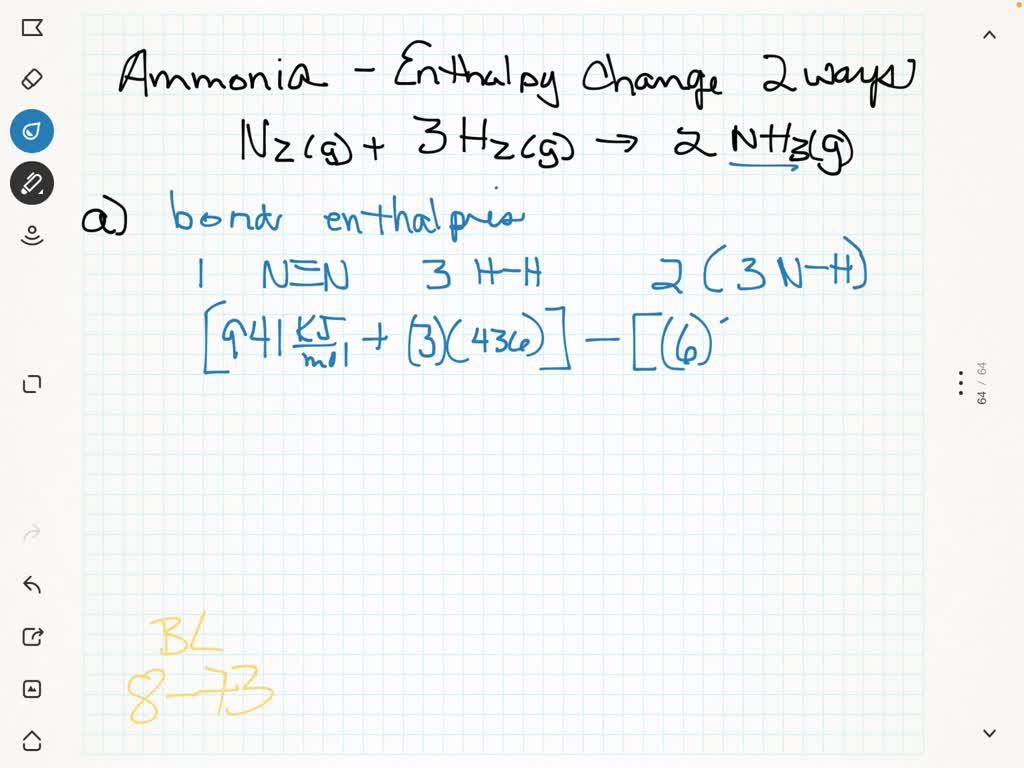 Ammonia - Enthalpy Change 2 ways
N2(g) + 3H2(g) → 2 NH3(g)
a) bond enthalpies
1 N≡N 3 H-H 2 (3 N-H)
[941 kJ/mol + (3)(436)] - [(6)
64 / 64
BL
8-73